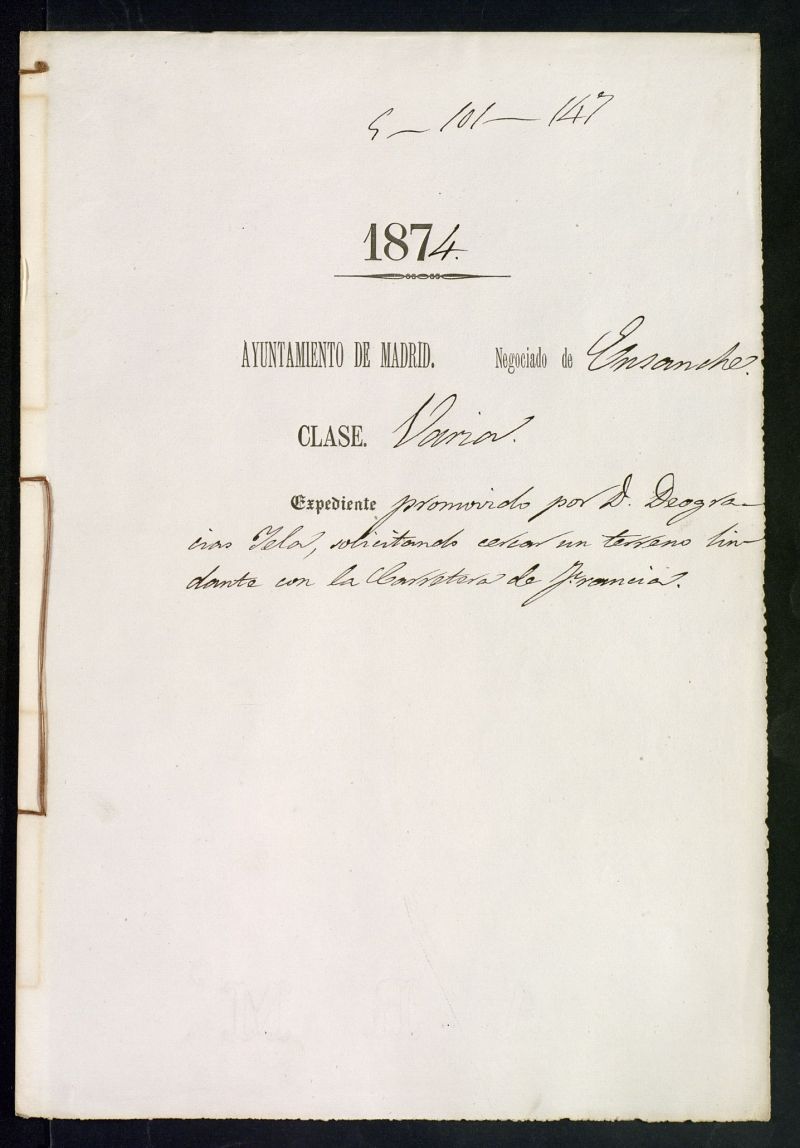 5 - 101 - 147
1874.
AYUNTAMIENTO DE MADRID. Negociado de Ensanche.
CLASE. Varia.
Expediente promovido por D. Deogra-
cias Tela, solicitando cercar un terreno lin-
dante con la Carretera de Francia.